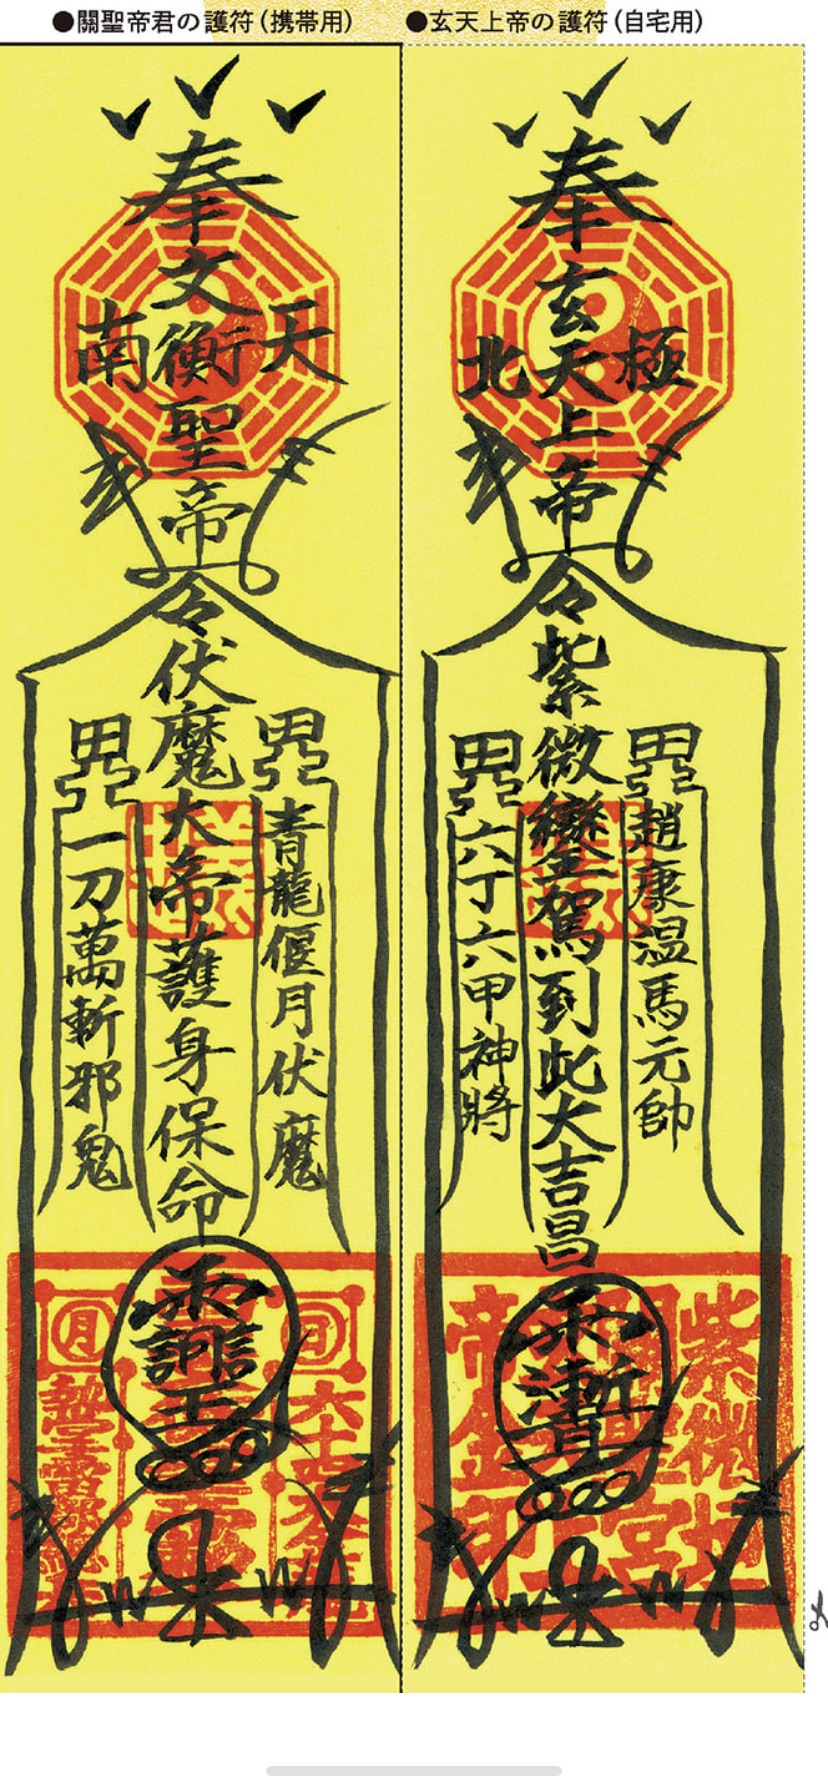 ●關聖帝君の護符(携帯用)
奉
文衡聖帝
南天
令
伏魔大帝護身保命
青龍偃月伏魔
一刀萬斬邪鬼
●玄天上帝の護符(自宅用)
奉
玄天上帝
北極
令
紫微鑾駕到此大吉昌
趙康温馬元帥
六丁六甲神將